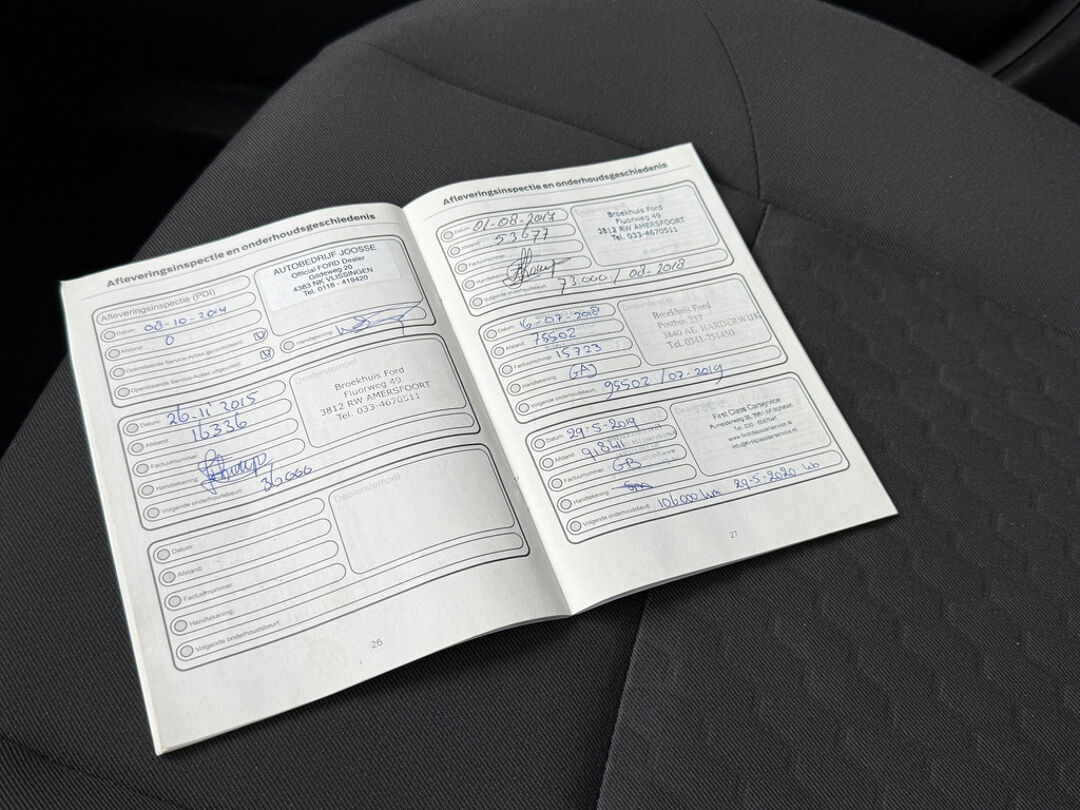 Afleveringsinspectie en onderhoudsgeschiedenis
Afleveringsinspectie (PDI)
Datum: 08-10-2014
Afstand: 0
Openstaande Service-Acties gecontroleerd:
Openstaande Service-Acties uitgevoerd:
AUTOBEDRIJF JOOSSE
Official FORD Dealer
Gildeweg 20
4383 NK VLISSINGEN
Tel. 0118 - 419420
Handtekening:
Datum: 26-11 2015
Afstand: 16336
Factuurnummer:
Handtekening:
Volgende onderhoudsbeurt: 36000
Dealerstempel
Broekhuis Ford
Fluorweg 49
3812 RW AMERSFOORT
Tel. 033-4670511
Datum:
Afstand:
Factuurnummer:
Handtekening:
Volgende onderhoudsbeurt:
Dealerstempel
26
Afleveringsinspectie en onderhoudsgeschiedenis
Datum: 01-08-2017
Afstand: 53677
Factuurnummer:
Handtekening:
Volgende onderhoudsbeurt: 73000 / 08-2018
Broekhuis Ford
Fluorweg 49
3812 RW AMERSFOORT
Tel. 033-4670511
Datum: 16-07-2018
Afstand: 75502
Factuurnummer: 15723
Handtekening: GAJ
Volgende onderhoudsbeurt: 95502 / 07-2019
Broekhuis Ford
Postbus 237
3840 AE HARDERWIJK
Tel. 0341-751450
Datum: 29-5-2019
Afstand: 91841
Factuurnummer: GB
Handtekening:
Volgende onderhoudsbeurt: 106000 km 29-5-2020
First Class Carservice
Tel. 030 -
www.firstclasscarservice.nl
info@firstclasscarservice.nl
27